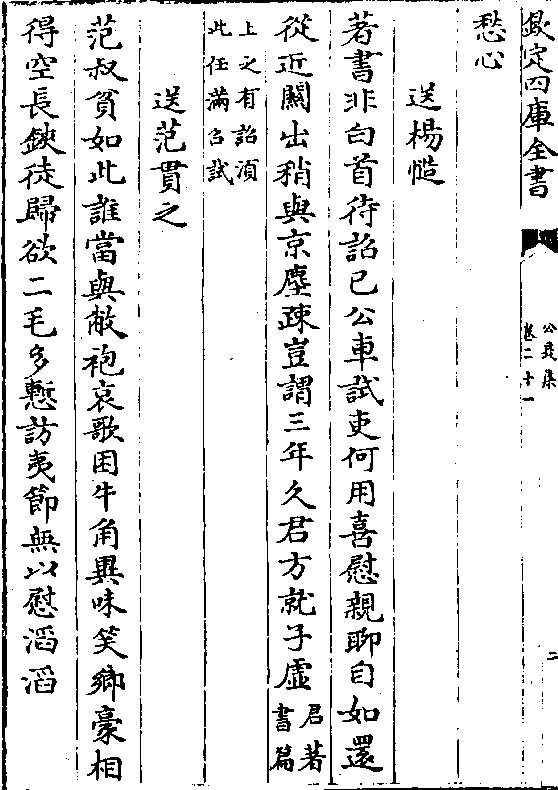 欽定四庫全書
公是集
卷二十一
二
愁心
送楊慥
著書非白首待詔已公車試吏何用喜慰親聊自如還
從近關出稍與京塵疎豈謂三年久君方就子虛君著
書篇
上之有詔須
此任滿召試
送范貫之
范叔貧如此誰當與敝袍哀歌困牛角異味笑鄉豪相
得空長鋏徒歸欲二毛多慙訪夷節無以慰滔滔